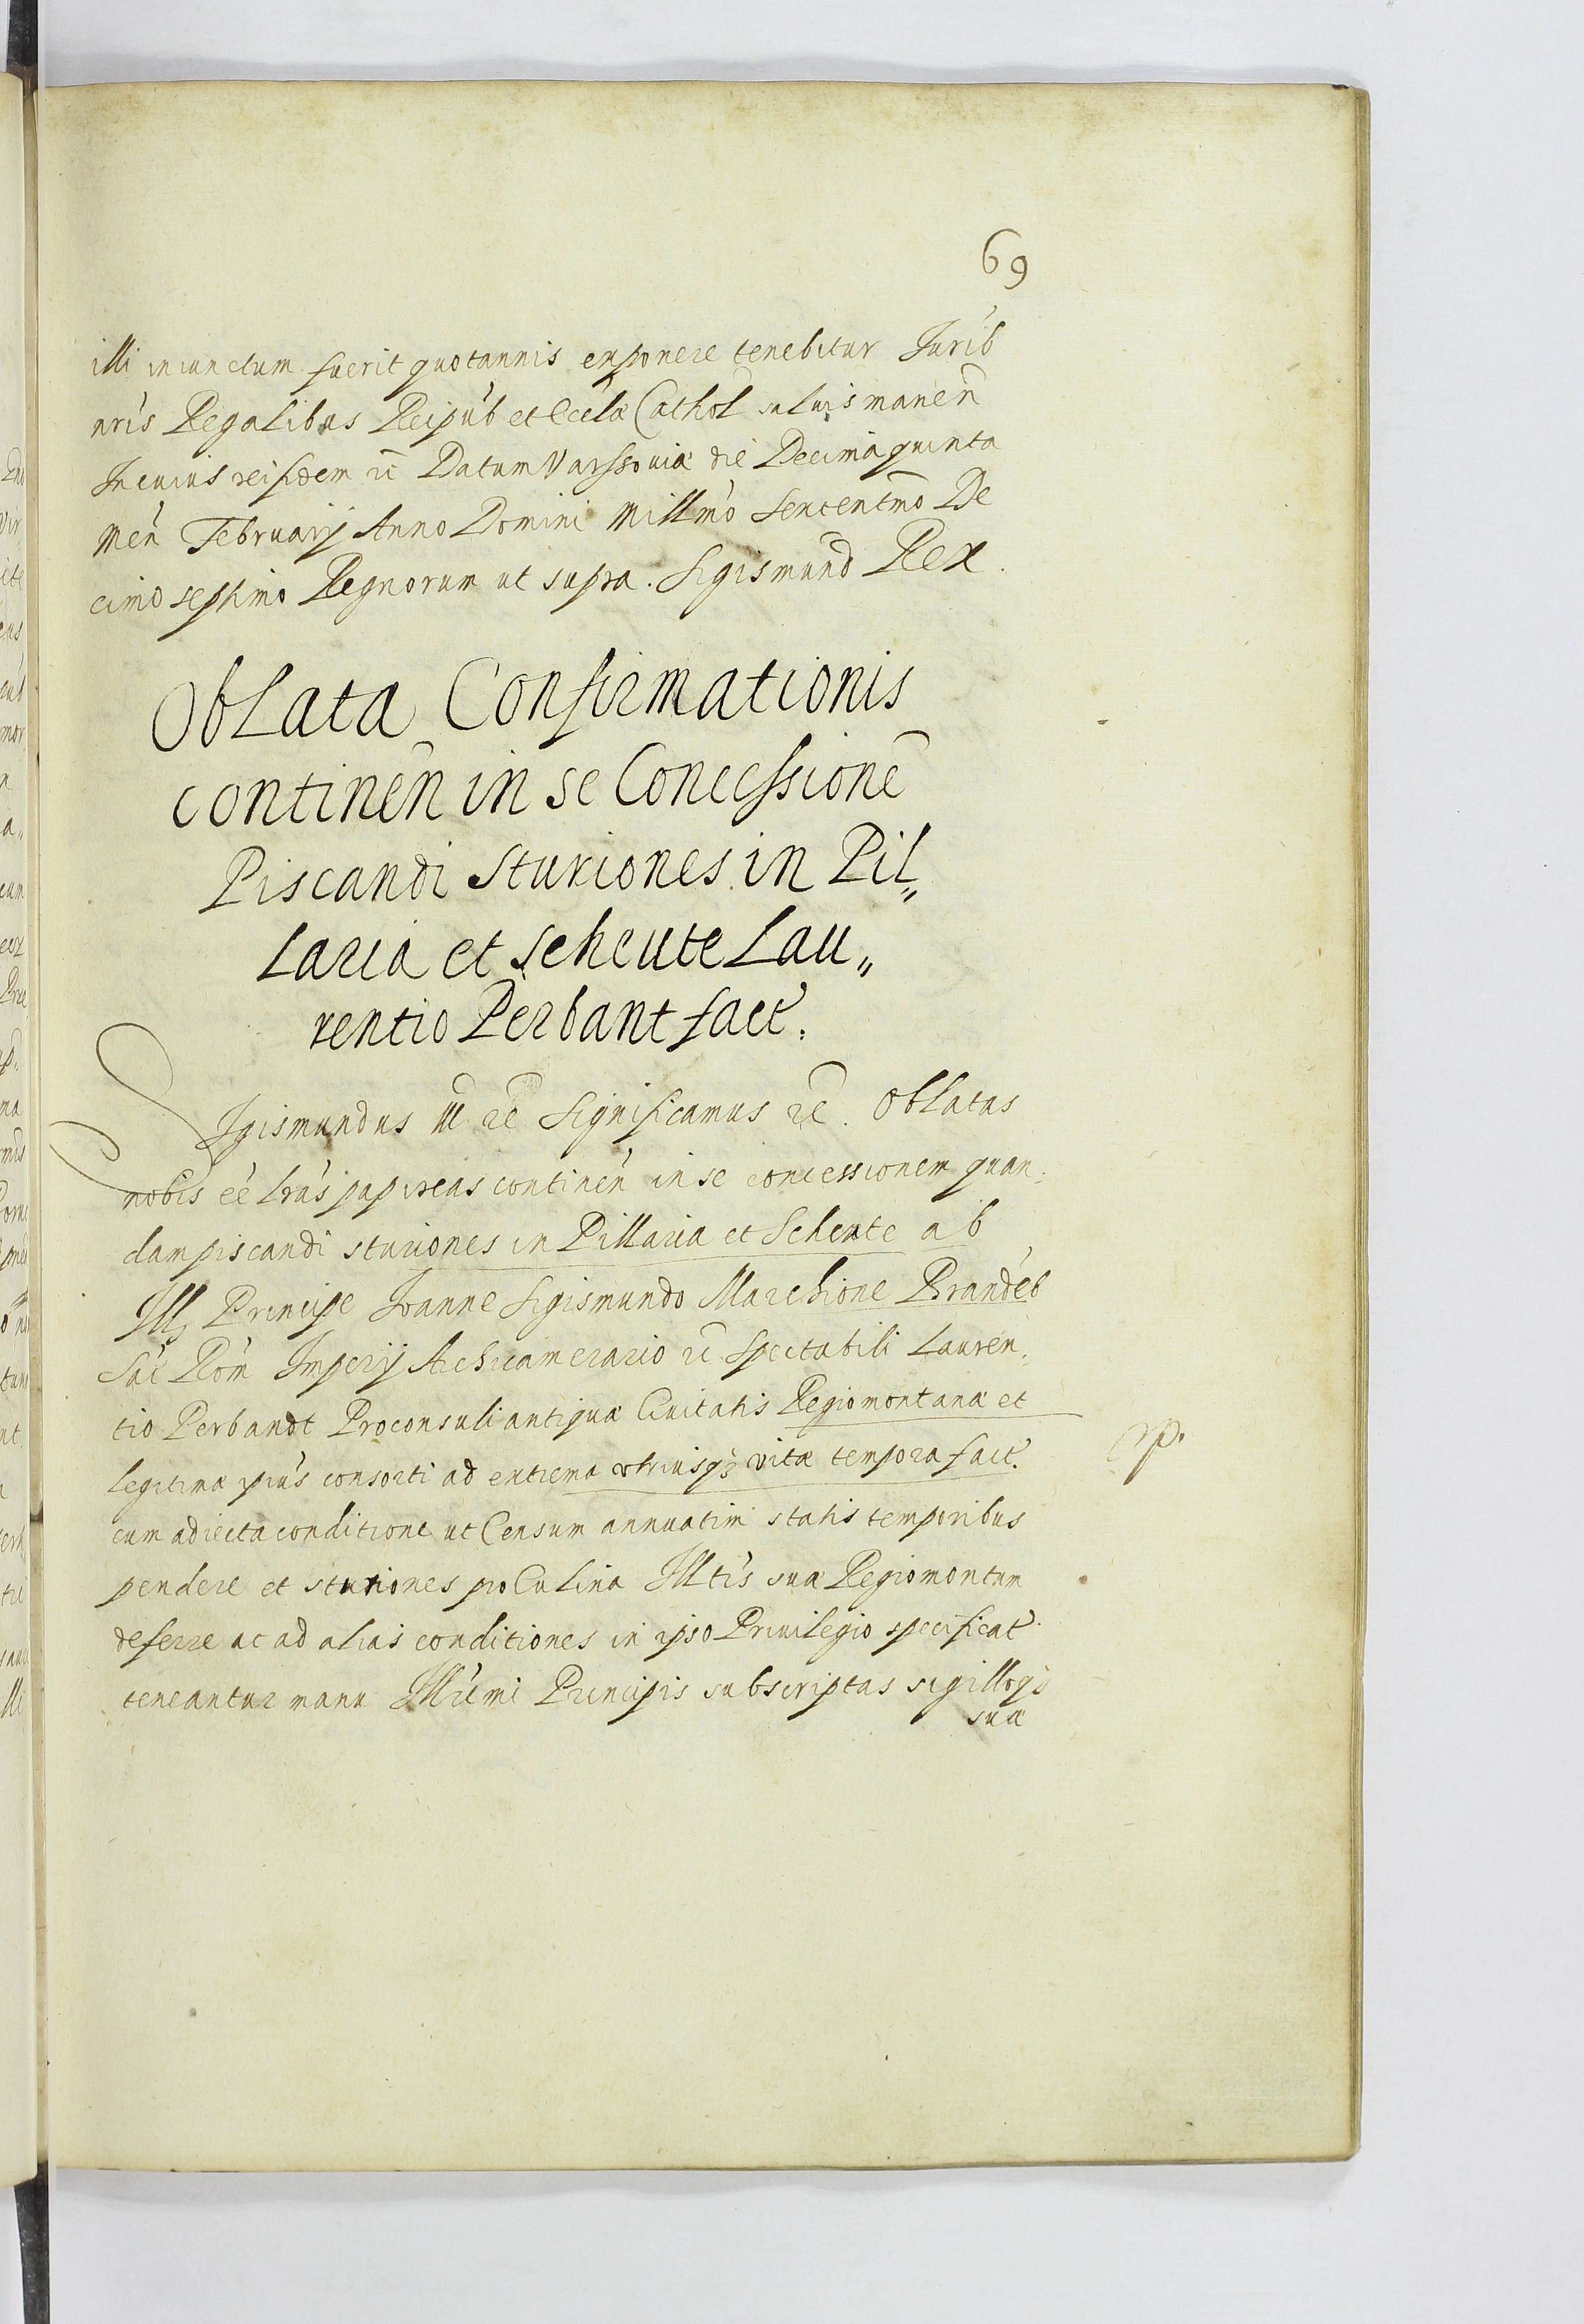 69
illi iniunctum fuerit quotannis exponere tenebitur Jurib
nris Regalibus Reipub et Eccla Cathol saluis manen
In cuius rei fidem rc Datum Varssouiæ die Decima quinta
Men Februarij Anno Domini Millmo Sexcentmo De
cimo septimo Regnorum ut supra. Sigismund Rex.
Oblata Confirmationis
continen in se Concessione
Piscandi Sturiones in Pil„
laria et Scheute Lau„
rentio Perbant fact.
Sigismundus III rc Significamus rc. Oblatas
nobis eē lras papireas continen in se concessionem quan:
dam piscandi sturiones in Pillaria et Scheute ab
Ill Principe Joanne Sigismundo Marchione Brandeb
Sac Rom Imperij Archicamerario rc Spectabili Lauren:
tio Perbandt Proconsuli antiquæ Ciuitatis Regiomontanæ et
legitimæ eius consorti ad extrema utriusq vitæ tempora fact.
cum adiecta conditione ut Censum annuatim statis temporibus
pendere et sturiones pro Culina Illtis suæ Regiomontum
deferre ac ad alias conditiones in ipso Priuilegio specificat.
teneantur manu Illrimi Principis subscriptas sigilloq
suæ